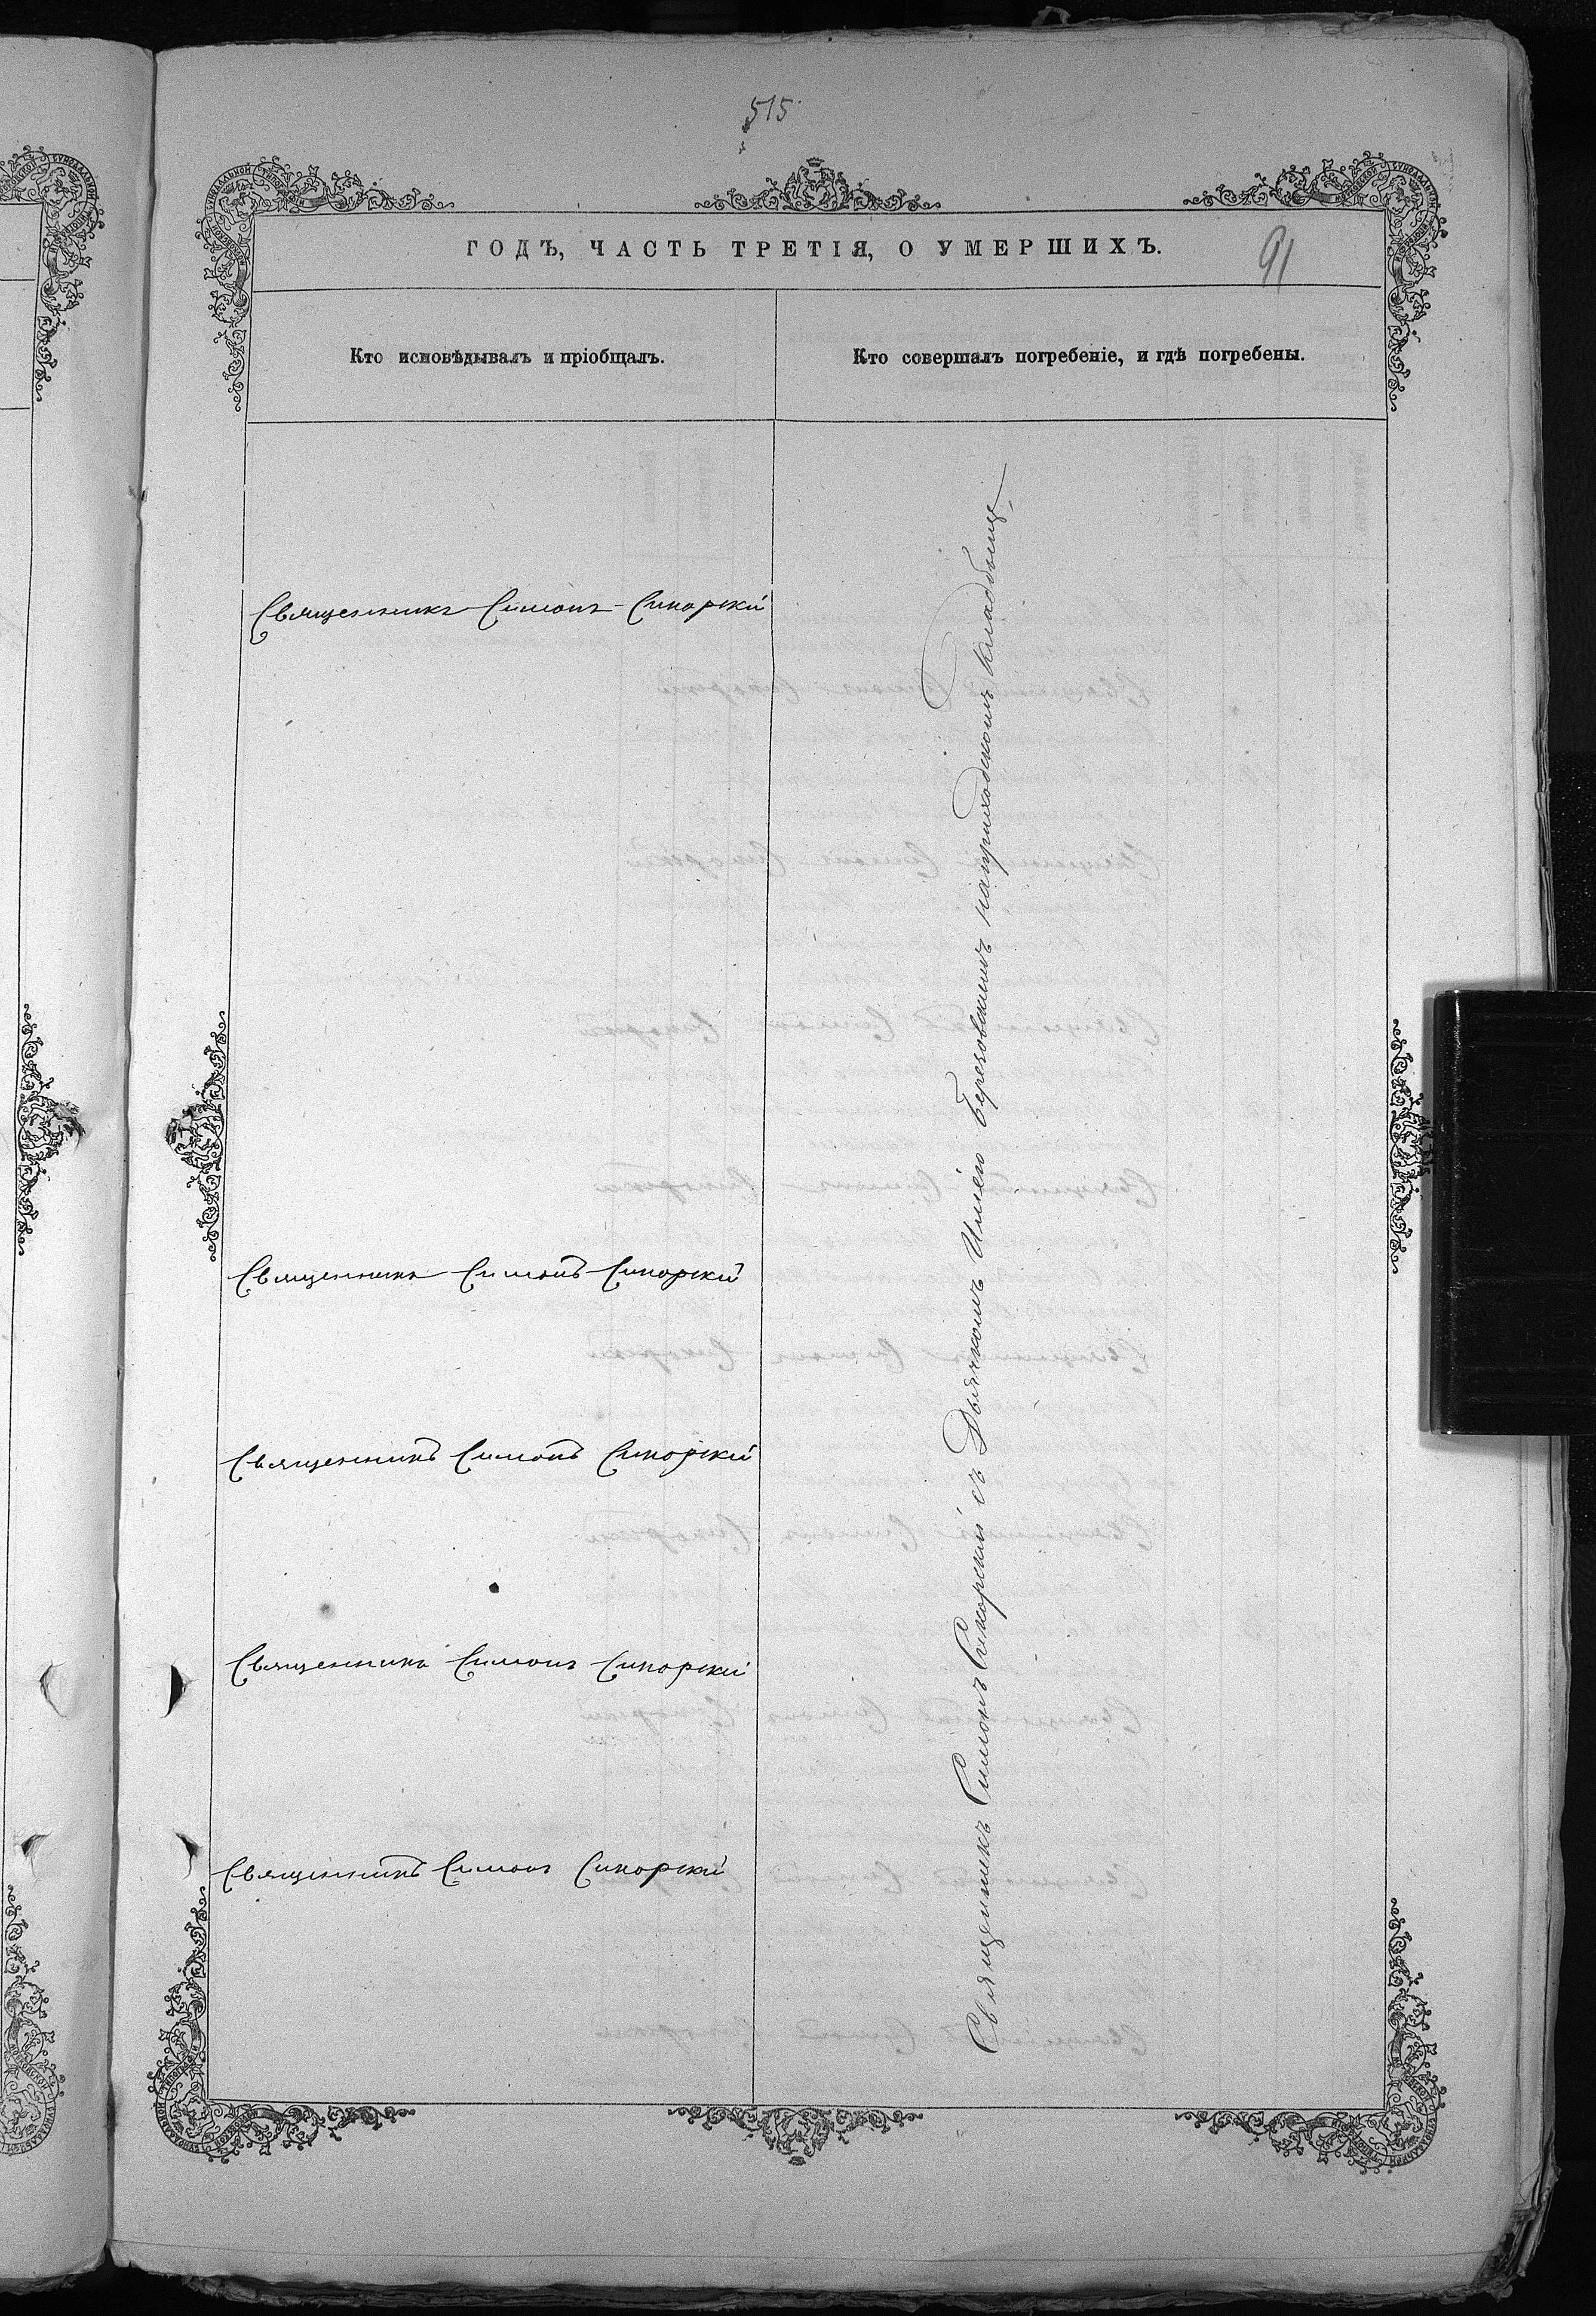 515
ГОДЪ, ЧАСТЬ ТРЕТІЯ, О УМЕРШИХЪ.
91
Кто исповѣдывалъ и пріобщалъ.
Кто совершалъ погребеніе, и гдѣ погребены.
Священникъ Симонъ Сикорскій
Священникъ Симонъ Сикорскій
Священникъ Симонъ Сикорскій
Священникъ Симонъ Сикорскій
Священникъ Симонъ Сикорскій
Священникъ Симонъ Сикорскій съ Дьячкомъ Иліею Березовскимъ наприходскомъ Кладбище